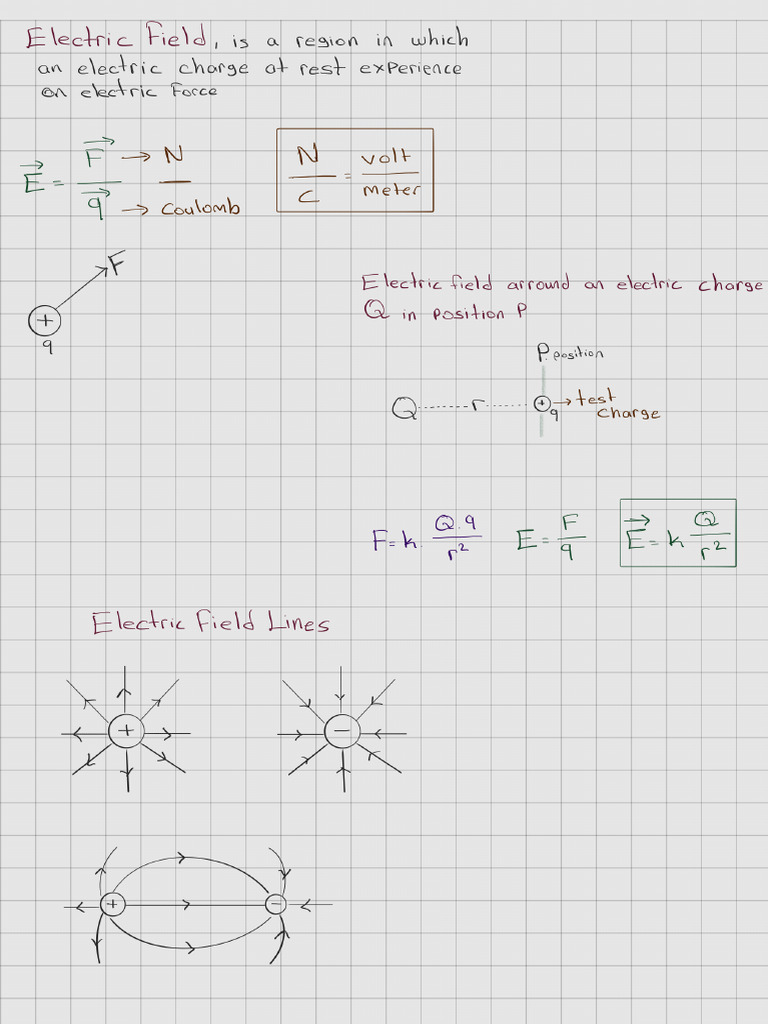 Electric Field, is a region in which
an electric charge at rest experience
an electric Force
E⃗ = F⃗ / q⃗ → N / → Coulomb
N / C = volt / meter
F
+
q
Electric field arround an electric charge
Q in position P
P. position
Q r + q → test
charge
F = k. Q.q / r² E = F / q E⃗ = k Q / r²
Electric Field Lines
+ −
+ −